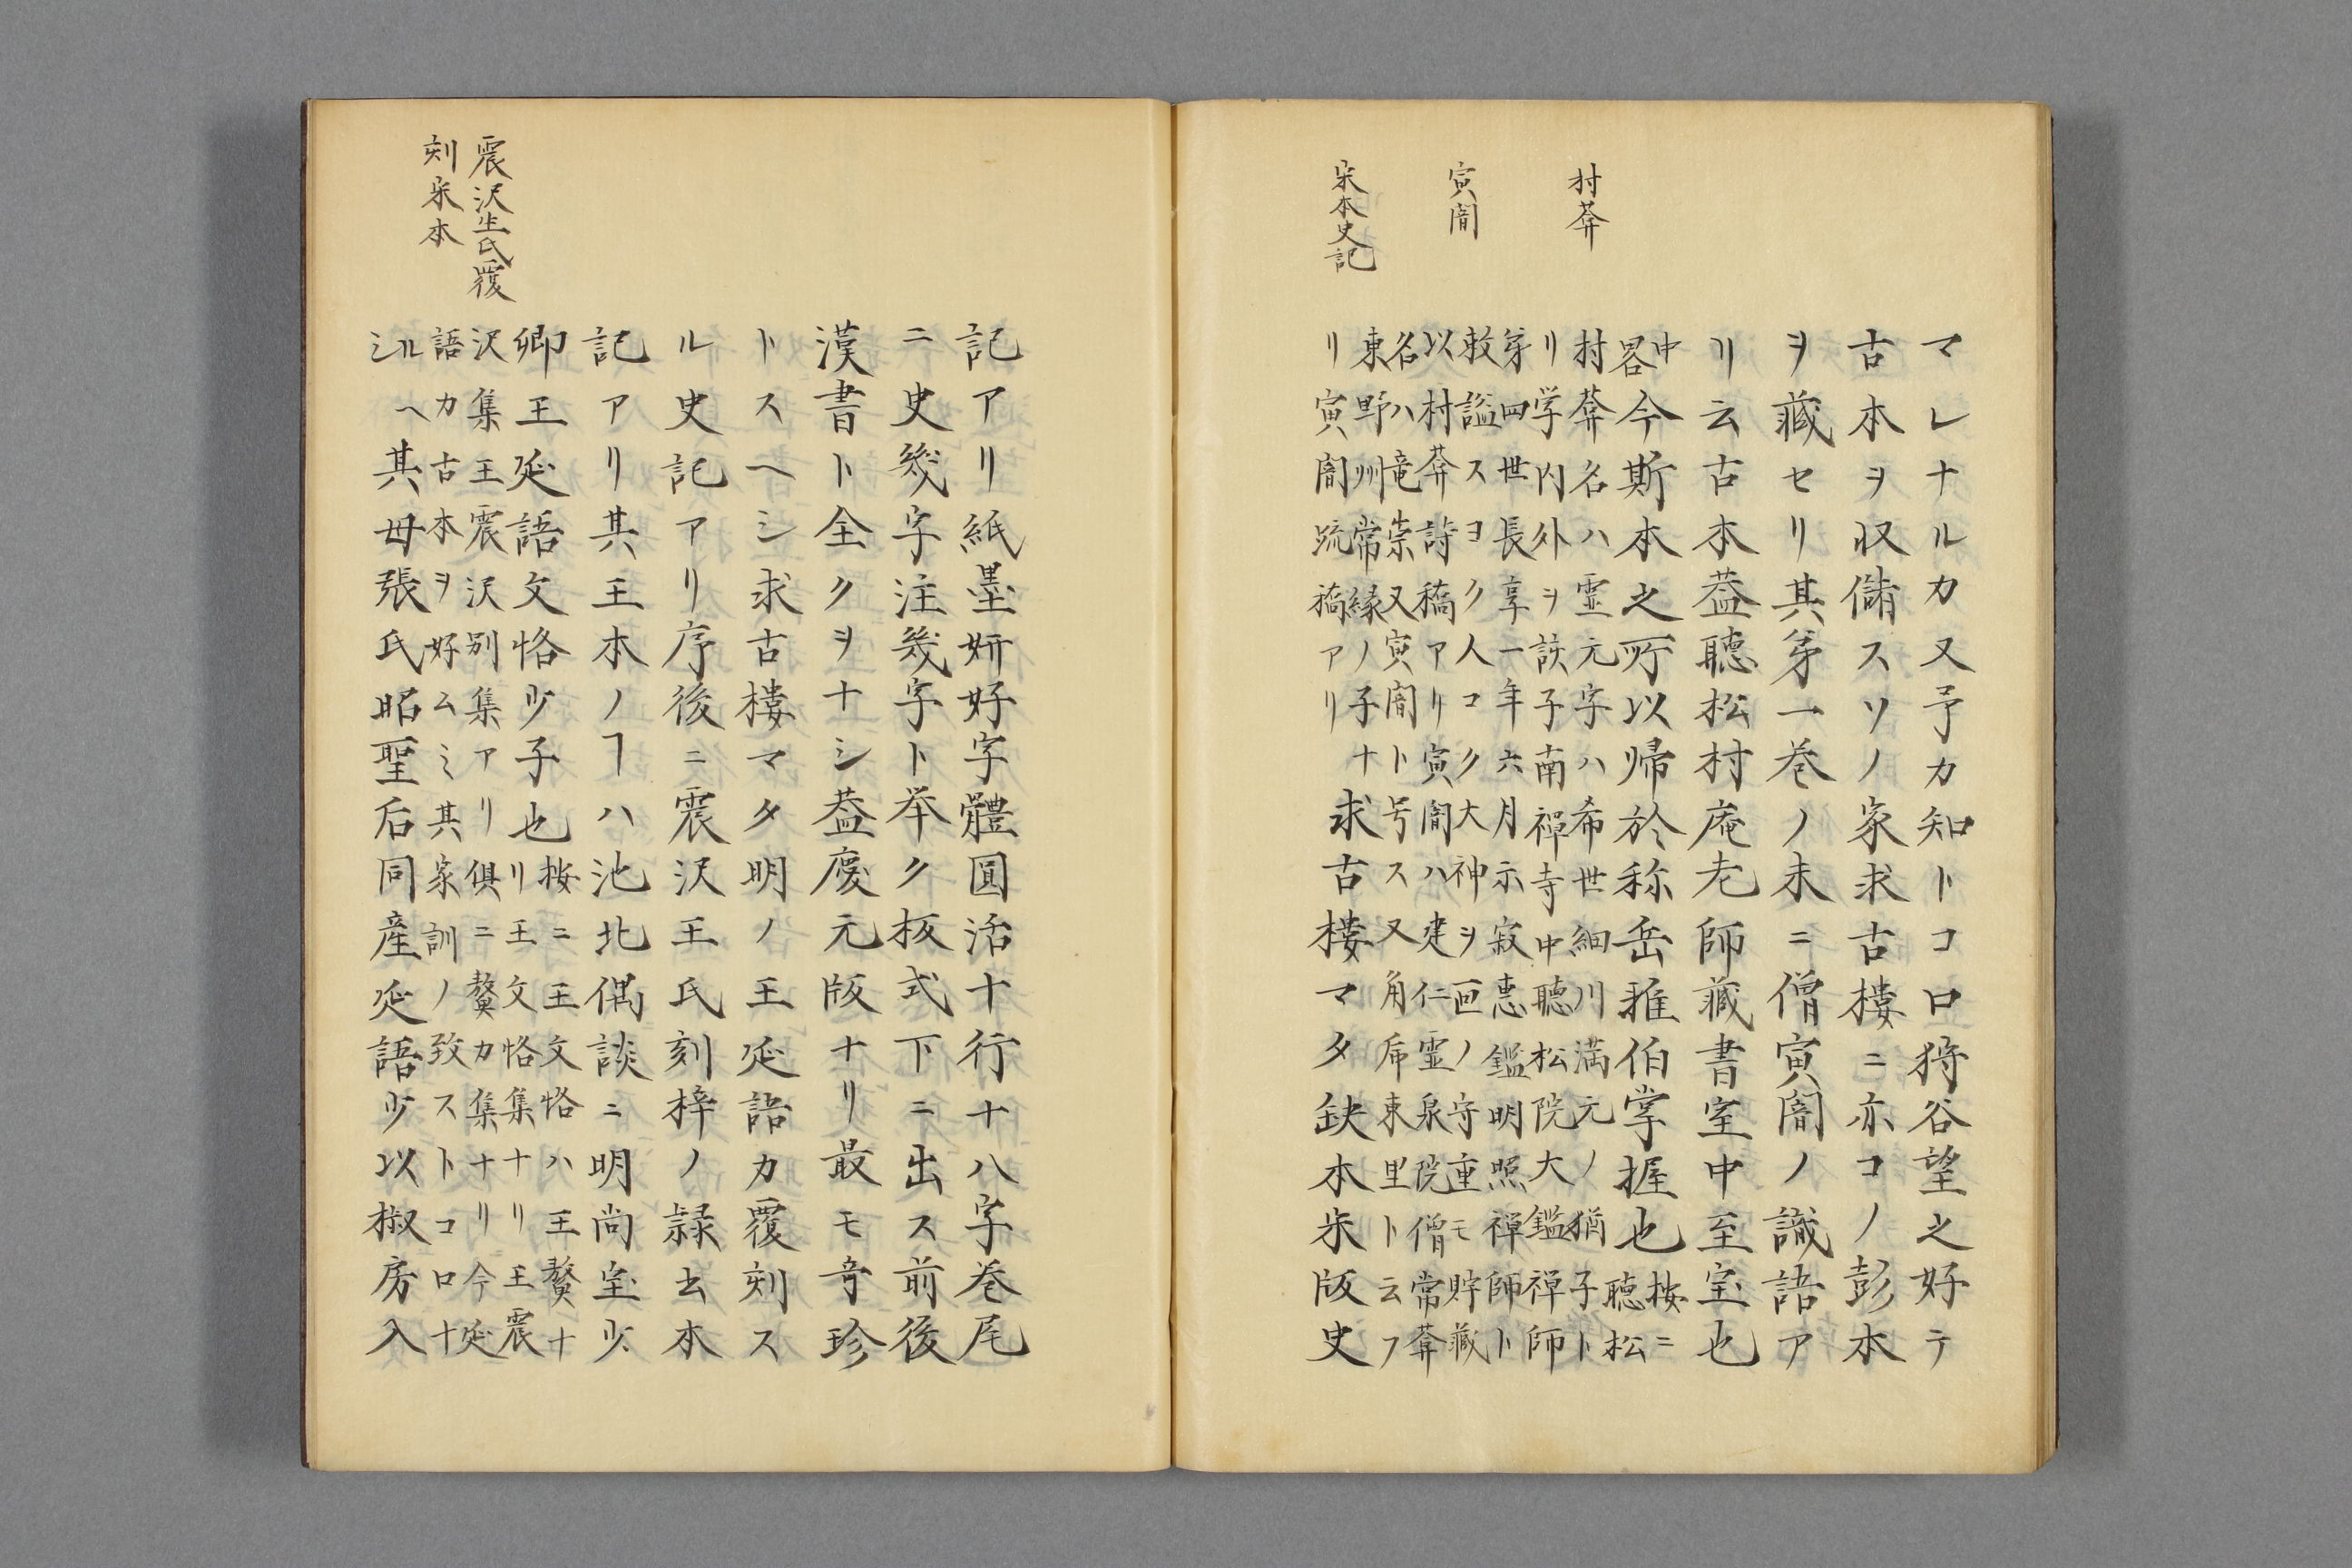 村菴
寅闇
宋本史記
マレナルカ又予カ知トコロ狩谷望之好テ
古本ヲ収儲スソノ家求古楼ニ亦コノ彭本
ヲ蔵セリ其第一巻ノ末ニ僧寅闇ノ識語ア
リ云古本葢聴松村庵老師蔵書室中至宝也
中畧今斯本之所以帰於称岳雅伯掌握也
按ニ聴松
村菴名ハ霊元字ハ希世細川満元ノ猶子ト
リ学内外ヲ該子南禅寺中聴松院大鑑禅師
穿四世長享一年六月示寂悳鑑明照禅師ト
敕謚スヨク人コク大神ヲ画ノ守重モ貯蔵
以村菴詩稿アリ寅闇ハ建仁霊泉院僧常菴
名ハ竜崇又寅闇ト号ス又角虎東里ト云フ
東野州常縁ノ子ナ
リ寅闇䟽稿アリ
求古楼マタ鈌本宋版史
震沢王氏覆
刻宋本
記アリ紙墨妍好字體圓活十行十八字巻尾
ニ史幾字注幾字ト挙ク板式下ニ出ス前後
漢書ト全クヲナシ葢慶元版ナリ最モ奇珍
トスヘシ求古楼マタ明ノ王延喆カ覆刻ス
ル史記アリ序後ニ震沢王氏刻梓ノ隷去本
記アリ其王本ノヿハ池北偶談ニ明尚宝少
卿王延語文恪少子也
按ニ王文恪ハ王鏊ナ
リ王文恪集ナリ王震
沢集王震沢別集アリ俱ニ鏊カ集ナリ今延
語カ古本ヲ好ムミ其家訓ノ致ストコロナ
シルヘ
其母張氏昭聖后同産延語少以椒房入